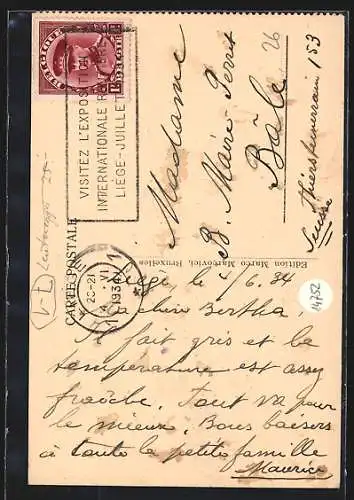 BELGIQUE BELGIË
VISITEZ L'EXPOSITION
INTERNATIONALE
LIÈGE - JUILLET
Madame
B. Maire-Perret
Bâle 26
Thiersteinerrain 153
Suisse
CARTE POSTALE
Edition Marco Marcovici, Bruxelles
20-21
VI
1934
14752
Liège, le 4/6.34
Ma chère Bertha,
Il fait gris et la
température est assez
fraîche. Tout va pour
le mieux. Bons baisers
à toute la petite famille
Maurice